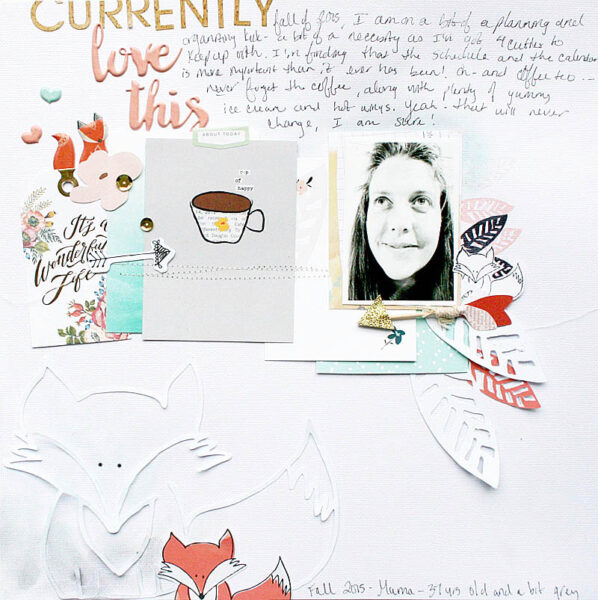 CURRENTLY
love
this
fall of 2015, I am on a bit of a planning and
organizing kick - a bit of a necessity as I've got 4 cuties to
keep up with. I'm finding that the schedule and the calendar
is more important than it ever has been! Oh - and coffee too...
never forget the coffee, along with plenty of yummy
ice cream and hot wings. Yeah - that will never
change, I am sure!
ABOUT TODAY
cup
of
happy
It's a
Wonderful
Life
Fall 2015 - Muma - 37 yrs old and a bit grey